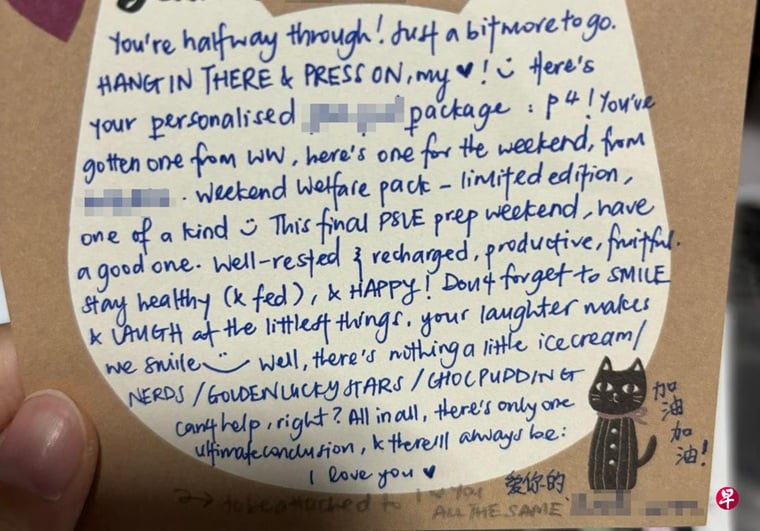 You're halfway through! Just a bit more to go.
HANG IN THERE & PRESS ON, my ♥! Here's
your personalised package : p4! You've
gotten one from WW, here's one for the weekend, from
. Weekend Welfare pack – limited edition,
one of a kind This final PSLE prep weekend, have
a good one. Well-rested & recharged, productive, fruitful.
Stay healthy (& fed), & HAPPY! Don't forget to SMILE
& LAUGH at the littlest things. your laughter makes
me smile Well, there's nothing a little ice cream/
NERDS / GOLDEN LUCKY STARS / CHOC PUDDING
can't help, right? All in all, there's only one
ultimate conclusion, & there'll always be:
I love you ♥
加油加油!
爱你的
→ to be attached to I ♥ YOU
ALL THE SAME
早